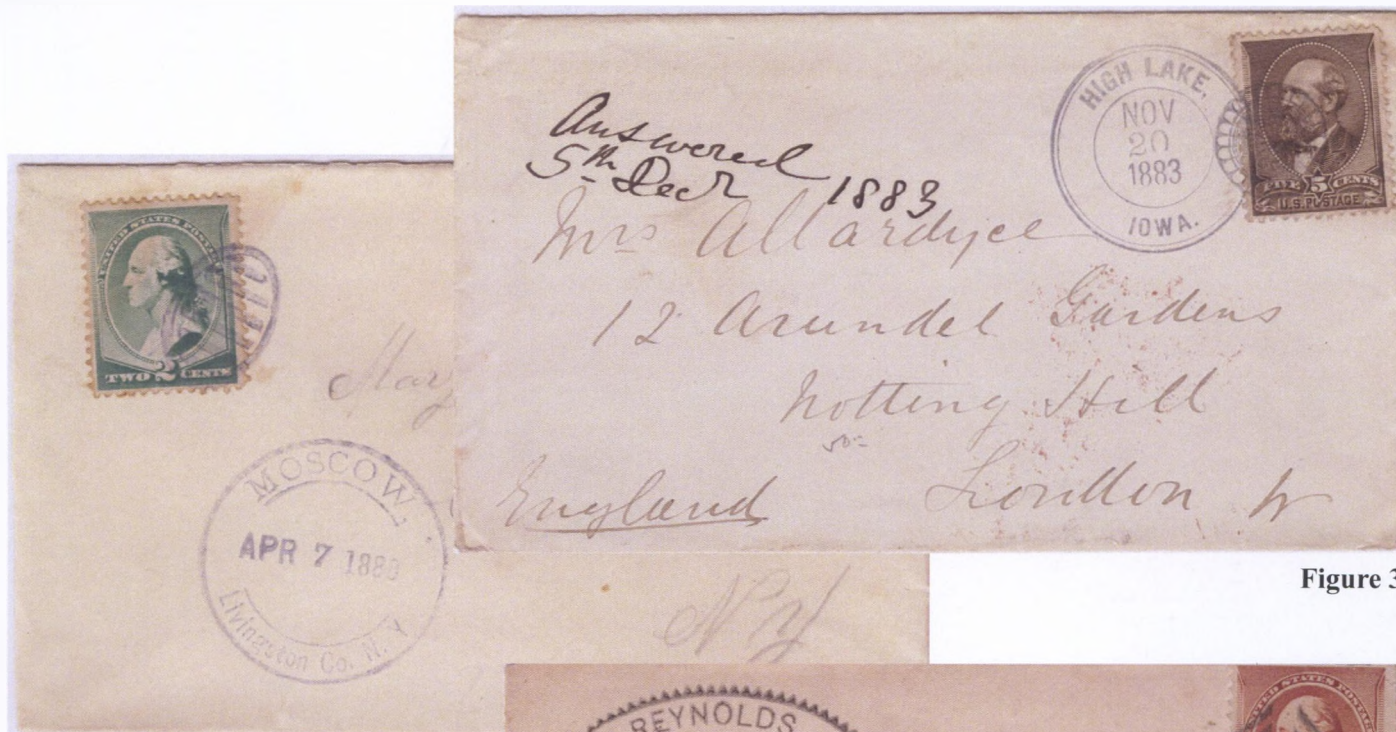 HIGH LAKE,
NOV
20
1883
IOWA.
FIVE 5 CENTS
U.S. POSTAGE
Answered
5th Decr 1883
Mrs Allardyce
12 Arundel Gardens
Notting Hill
London W
England
UNITED STATES POSTAGE
TWO 2 CENTS
Mary
MOSCOW,
APR 7 188
Livingston Co. N.Y
NY
Figure 3
REYNOLDS
UNITED STATES POSTAGE